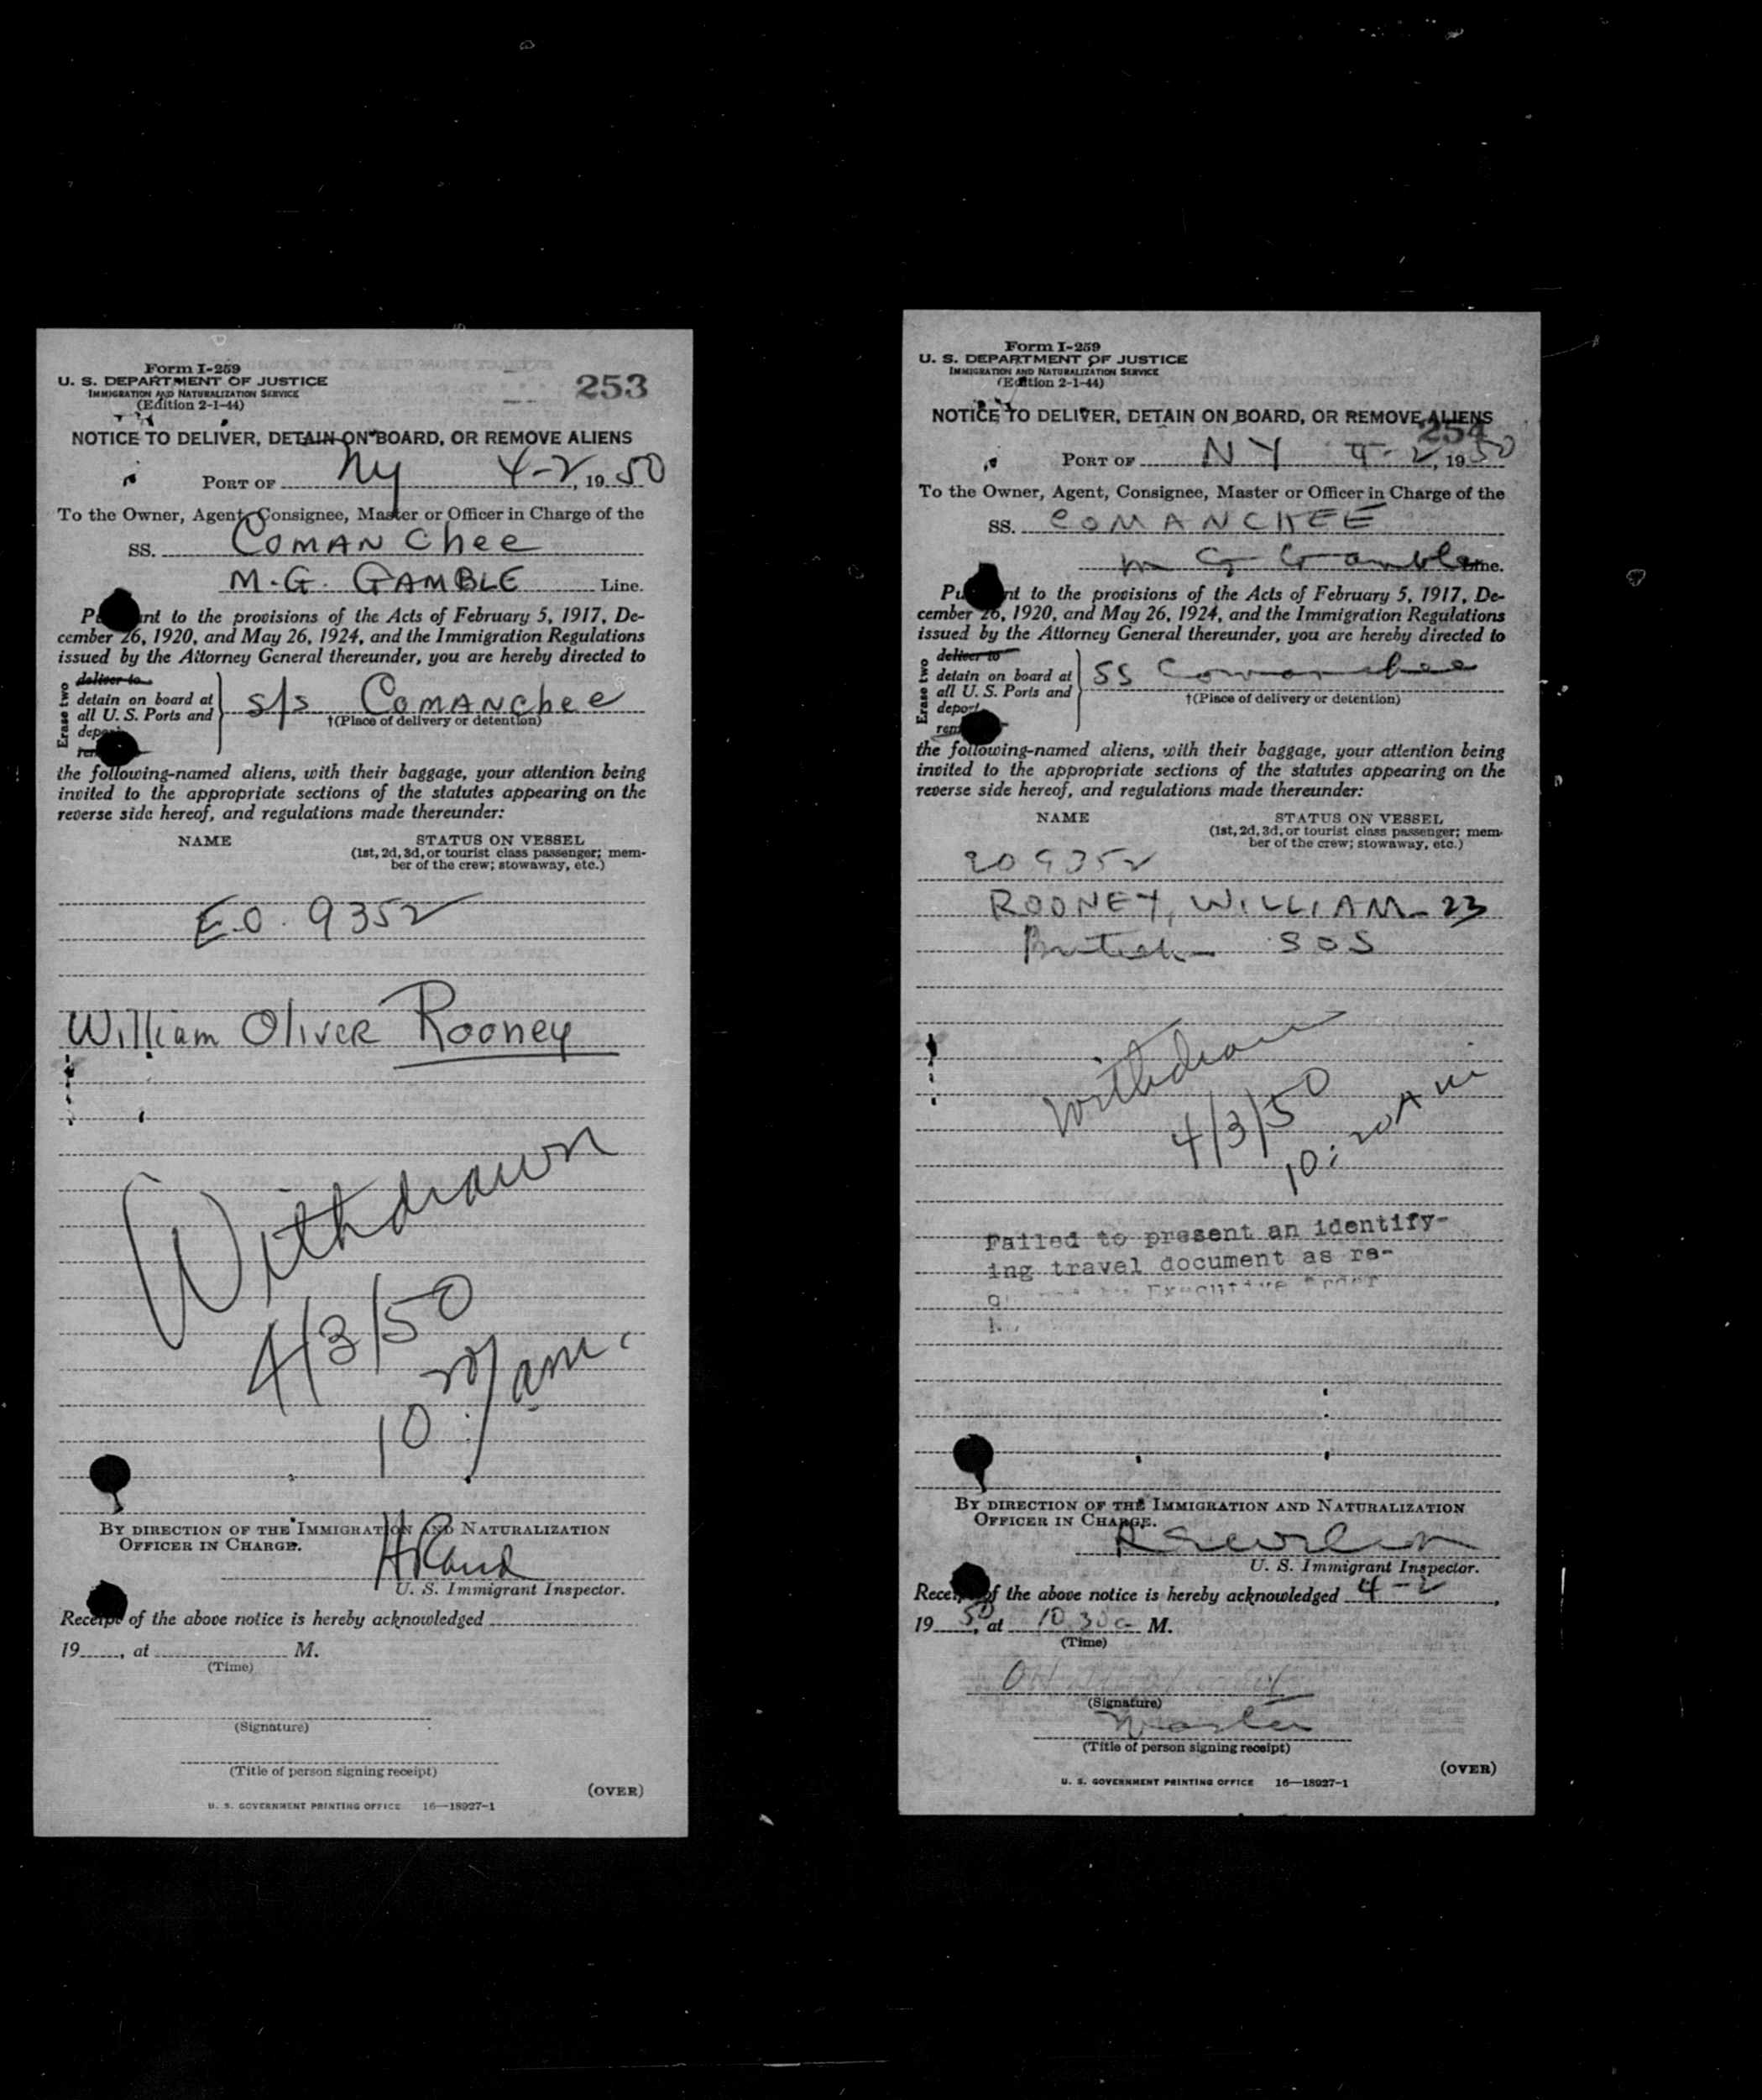 Form I-259
U. S. DEPARTMENT OF JUSTICE
IMMIGRATION AND NATURALIZATION SERVICE
(Edition 2-1-44)
253
NOTICE TO DELIVER, DETAIN ON BOARD, OR REMOVE ALIENS
PORT OF NY 4-2, 1950
To the Owner, Agent, Consignee, Master or Officer in Charge of the
SS. COMANChee
M.G. GAMBLE Line.
nt to the provisions of the Acts of February 5, 1917, De-
cember 26, 1920, and May 26, 1924, and the Immigration Regulations
issued by the Attorney General thereunder, you are hereby directed to
Erase two
deliver to
detain on board at
all U. S. Ports and
S/S COMANChee
†(Place of delivery or detention)
the following-named aliens, with their baggage, your attention being
invited to the appropriate sections of the statutes appearing on the
reverse side hereof, and regulations made thereunder:
NAME STATUS ON VESSEL
(1st, 2d, 3d, or tourist class passenger; mem-
ber of the crew; stowaway, etc.)
E.O. 9352
William Oliver Rooney
Withdrawn
4/3/50
10:20/am.
BY DIRECTION OF THE IMMIGRATION AND NATURALIZATION
OFFICER IN CHARGE.
U. S. Immigrant Inspector.
Receipt of the above notice is hereby acknowledged
19, at M.
(Time)
(Signature)
(Title of person signing receipt)
(OVER)
U. S. GOVERNMENT PRINTING OFFICE 16—18927-1
Form I-259
U. S. DEPARTMENT OF JUSTICE
IMMIGRATION AND NATURALIZATION SERVICE
(Edition 2-1-44)
NOTICE TO DELIVER, DETAIN ON BOARD, OR REMOVE ALIENS
254
PORT OF NY 4-2, 1950
To the Owner, Agent, Consignee, Master or Officer in Charge of the
SS. COMANCHEE
M G Gamble Line.
nt to the provisions of the Acts of February 5, 1917, De-
cember 26, 1920, and May 26, 1924, and the Immigration Regulations
issued by the Attorney General thereunder, you are hereby directed to
Erase two
deliver to
detain on board at
all U. S. Ports and
SS Comanchee
†(Place of delivery or detention)
the following-named aliens, with their baggage, your attention being
invited to the appropriate sections of the statutes appearing on the
reverse side hereof, and regulations made thereunder:
NAME STATUS ON VESSEL
(1st, 2d, 3d, or tourist class passenger; mem-
ber of the crew; stowaway, etc.)
9352
ROONEY, WILLIAM - 23
British - SOS
Withdrawn
4/3/50
10:20 AM
Failed to present an identify-
ing travel document as re-
Executive Order
BY DIRECTION OF THE IMMIGRATION AND NATURALIZATION
OFFICER IN CHARGE.
U. S. Immigrant Inspector.
of the above notice is hereby acknowledged 4-2,
1950, at 10 30 a M.
(Time)
(Signature)
Master
(Title of person signing receipt)
(OVER)
U. S. GOVERNMENT PRINTING OFFICE 16—18927-1